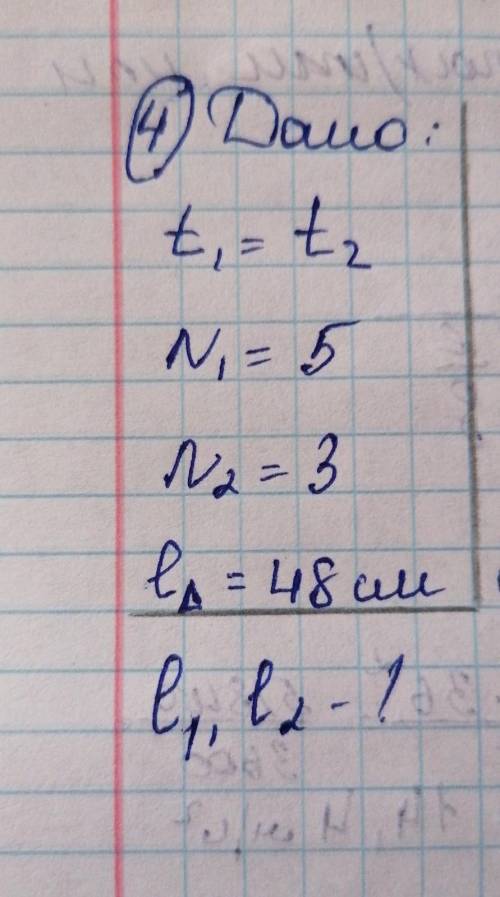 4 Дано:
t₁ = t₂
N₁ = 5
N₂ = 3
l∆ = 48 см
l₁, l₂ - ?